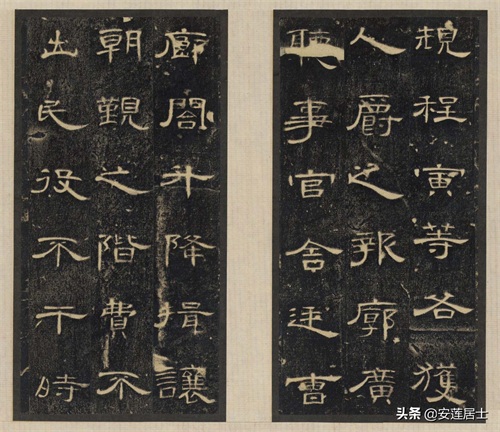 規程寅等各獲
人爵之報廓廣
聽事官舍廷曹
廊閣升降揖讓
朝覲之階費不
出民役不干時
头条 @安莲居士